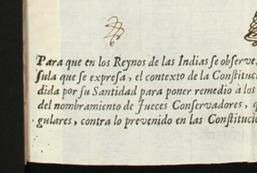 Para que en los Reynos de las Indias se observe,
sula que se expresa, el contexto de la Constituc
dida por su Santidad para poner remedio à los
del nombramiento de Jueces Conservadores, q
gulares, contra lo prevenido en las Constitucio